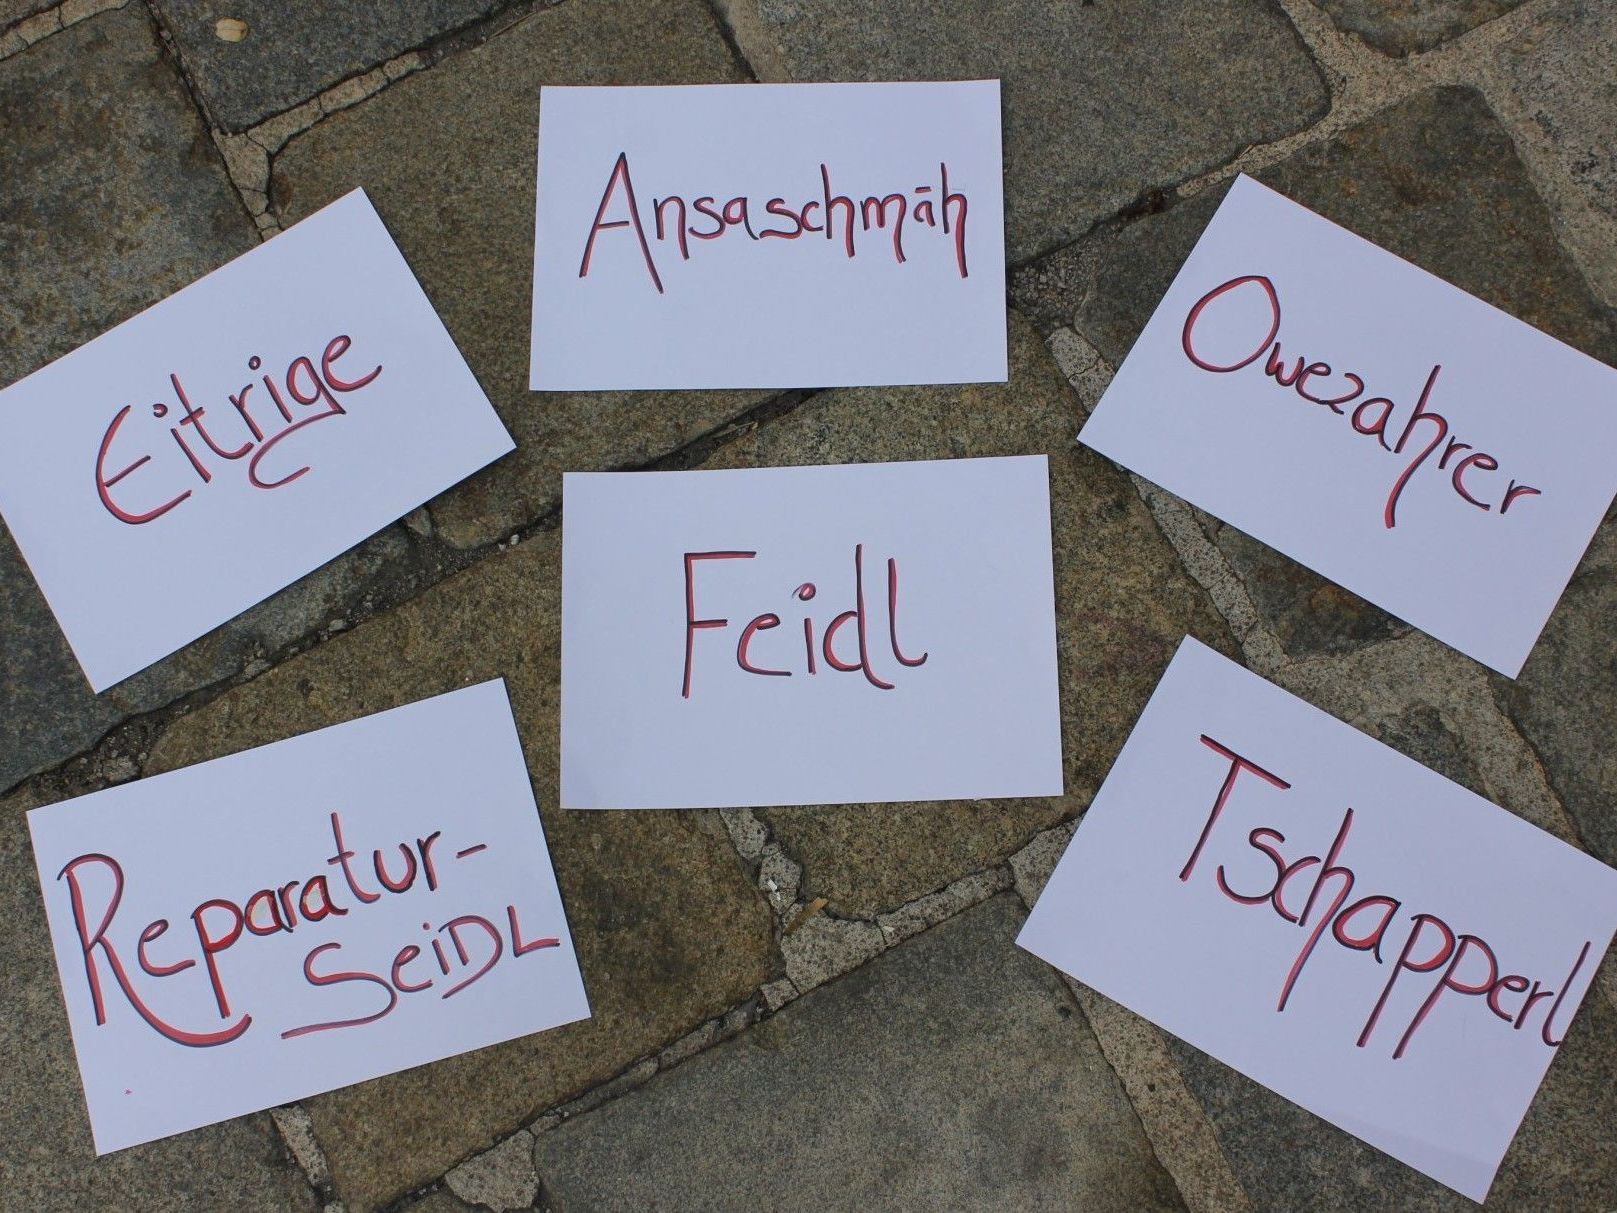 Ansaschmäh
Eitrige
Owezahrer
Feidl
Reparatur-
SeiDL
Tschapperl